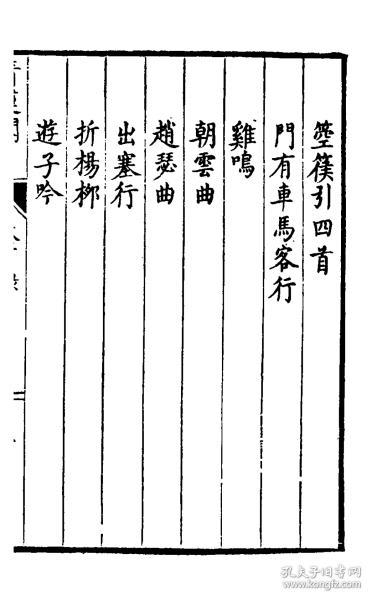 箜篌引四首
門有車馬客行
雞鳴
朝雲曲
趙瑟曲
出塞行
折楊栁
遊子吟
孔夫子旧书网